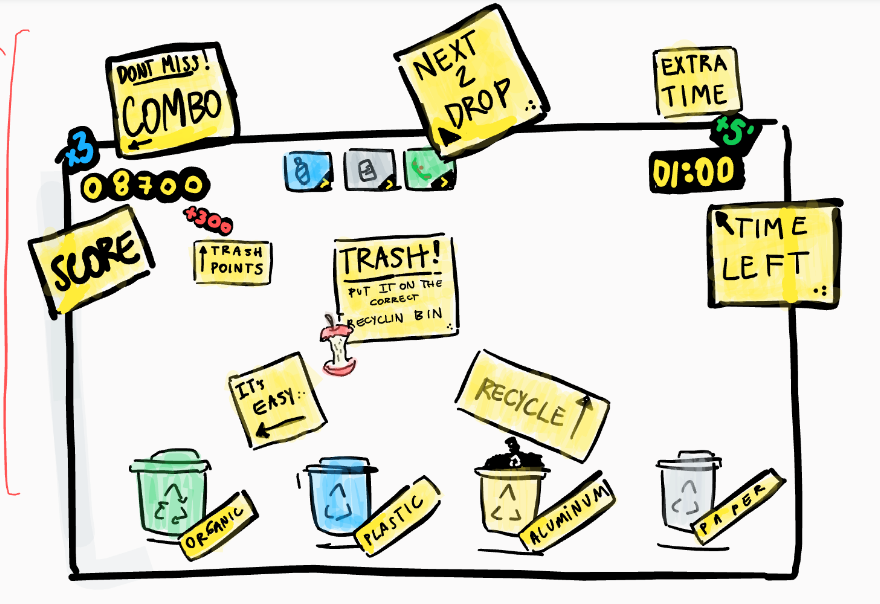 DONT MISS!
COMBO
NEXT
2
DROP
EXTRA
TIME
x3
+5
08700
01:00
+300
SCORE
TRASH
POINTS
TRASH!
PUT IT ON THE
CORRECT
RECYCLIN BIN
TIME
LEFT
IT'S
EASY..
RECYCLE
ORGANIC
PLASTIC
ALUMINUM
PAPER